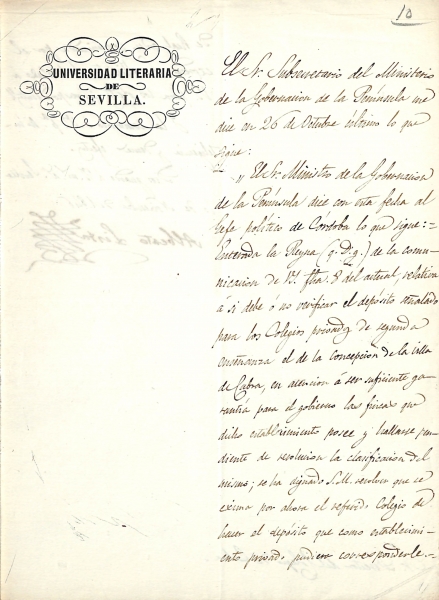 10
UNIVERSIDAD LITERARIA
DE
SEVILLA.
El Sr. Subsecretario del Ministerio
de la Gobernacion de la Península me
dice en 26 de Octubre último lo que
sigue:
" El Sr. Ministro de la Gobernacion
de la Península dice con esta fecha al
Gefe político de Córdoba lo que sigue:=
Enterada la Reyna (q. D. g.) de la comu-
nicacion de V. fha. 8 del actual, relativa
á si debe ó no verificar el depósito señalado
para los Colegios privados de segunda
enseñanza el de la Concepcion de la villa
de Cabra, en atencion á ser suficiente ga-
rantia para el gobierno las fincas que
dicho establecimiento posee y hallarse pen-
diente de resolucion la clasificacion del
mismo; se ha dignado S.M. resolver que se
exima por ahora el referido Colegio de
hacer el depósito que como establecimi-
ento privado pudiera corresponderle.=